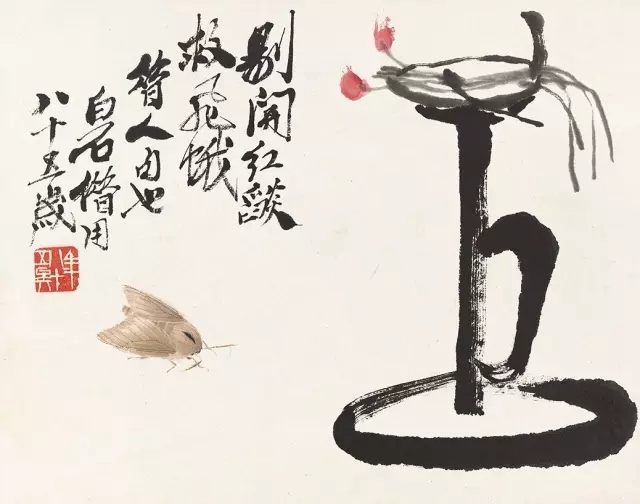 剔開紅燄
救飛蛾
昔人句也
白石借用
八十五歲